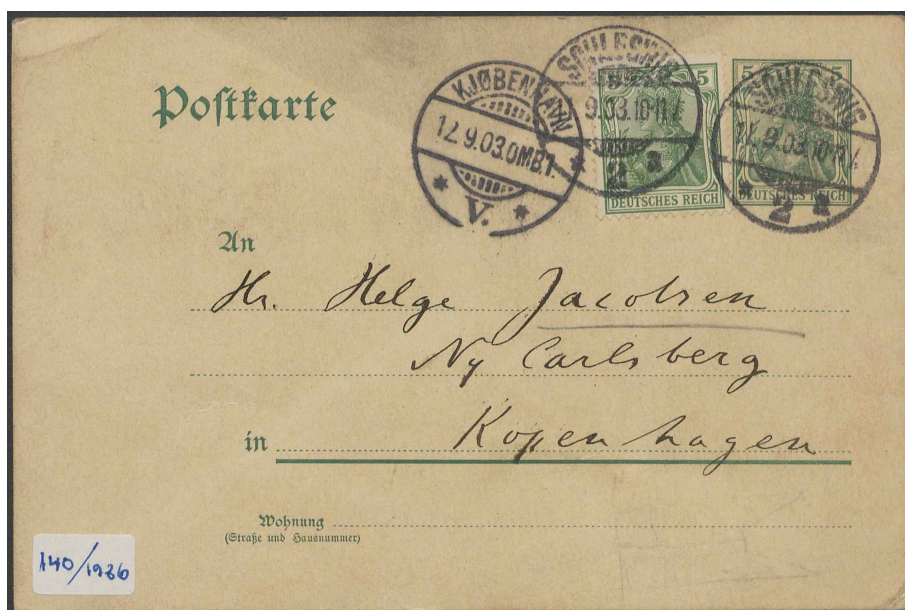 Postkarte
KJØBENHAVN
12.9.03.OMB.1.
V.
SCHLESWIG
9.03.10-11V.
2 a
5
DEUTSCHES REICH
5 5
SCHLESWIG
9.03.10-11V.
2 a
DEUTSCHES REICH
An
Hr. Helge Jacobsen
Ny Carlsberg
in Kopenhagen
Wohnung
(Straße und Hausnummer)
140/1986